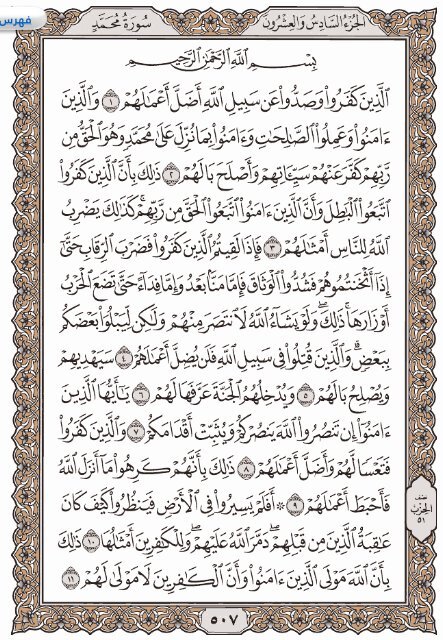 فهرس
سُورَةُ مُحَمَّد
الجُزْءُ السَّادِسُ وَالعِشْرُونَ
بِسْمِ ٱللَّهِ ٱلرَّحْمَٰنِ ٱلرَّحِيمِ
ٱلَّذِينَ كَفَرُوا۟ وَصَدُّوا۟ عَن سَبِيلِ ٱللَّهِ أَضَلَّ أَعْمَٰلَهُمْ ١ وَٱلَّذِينَ
ءَامَنُوا۟ وَعَمِلُوا۟ ٱلصَّٰلِحَٰتِ وَءَامَنُوا۟ بِمَا نُزِّلَ عَلَىٰ مُحَمَّدٍ وَهُوَ ٱلْحَقُّ مِن
رَّبِّهِمْ كَفَّرَ عَنْهُمْ سَيِّـَٔاتِهِمْ وَأَصْلَحَ بَالَهُمْ ٢ ذَٰلِكَ بِأَنَّ ٱلَّذِينَ كَفَرُوا۟
ٱتَّبَعُوا۟ ٱلْبَٰطِلَ وَأَنَّ ٱلَّذِينَ ءَامَنُوا۟ ٱتَّبَعُوا۟ ٱلْحَقَّ مِن رَّبِّهِمْ ۚ كَذَٰلِكَ يَضْرِبُ
ٱللَّهُ لِلنَّاسِ أَمْثَٰلَهُمْ ٣ فَإِذَا لَقِيتُمُ ٱلَّذِينَ كَفَرُوا۟ فَضَرْبَ ٱلرِّقَابِ حَتَّىٰٓ
إِذَآ أَثْخَنتُمُوهُمْ فَشُدُّوا۟ ٱلْوَثَاقَ فَإِمَّا مَنًّۢا بَعْدُ وَإِمَّا فِدَآءً حَتَّىٰ تَضَعَ ٱلْحَرْبُ
أَوْزَارَهَا ۚ ذَٰلِكَ ۖ وَلَوْ يَشَآءُ ٱللَّهُ لَٱنتَصَرَ مِنْهُمْ وَلَٰكِن لِّيَبْلُوَا۟ بَعْضَكُم
بِبَعْضٍ ۗ وَٱلَّذِينَ قُتِلُوا۟ فِى سَبِيلِ ٱللَّهِ فَلَن يُضِلَّ أَعْمَٰلَهُمْ ٤ سَيَهْدِيهِمْ
وَيُصْلِحُ بَالَهُمْ ٥ وَيُدْخِلُهُمُ ٱلْجَنَّةَ عَرَّفَهَا لَهُمْ ٦ يَٰٓأَيُّهَا ٱلَّذِينَ
ءَامَنُوٓا۟ إِن تَنصُرُوا۟ ٱللَّهَ يَنصُرْكُمْ وَيُثَبِّتْ أَقْدَامَكُمْ ٧ وَٱلَّذِينَ كَفَرُوا۟
فَتَعْسًا لَّهُمْ وَأَضَلَّ أَعْمَٰلَهُمْ ٨ ذَٰلِكَ بِأَنَّهُمْ كَرِهُوا۟ مَآ أَنزَلَ ٱللَّهُ
فَأَحْبَطَ أَعْمَٰلَهُمْ ٩ ۞ أَفَلَمْ يَسِيرُوا۟ فِى ٱلْأَرْضِ فَيَنظُرُوا۟ كَيْفَ كَانَ
عَٰقِبَةُ ٱلَّذِينَ مِن قَبْلِهِمْ ۚ دَمَّرَ ٱللَّهُ عَلَيْهِمْ ۖ وَلِلْكَٰفِرِينَ أَمْثَٰلُهَا ١٠ ذَٰلِكَ
بِأَنَّ ٱللَّهَ مَوْلَى ٱلَّذِينَ ءَامَنُوا۟ وَأَنَّ ٱلْكَٰفِرِينَ لَا مَوْلَىٰ لَهُمْ ١١
نصف
الحزب
٥١
٥٠٧